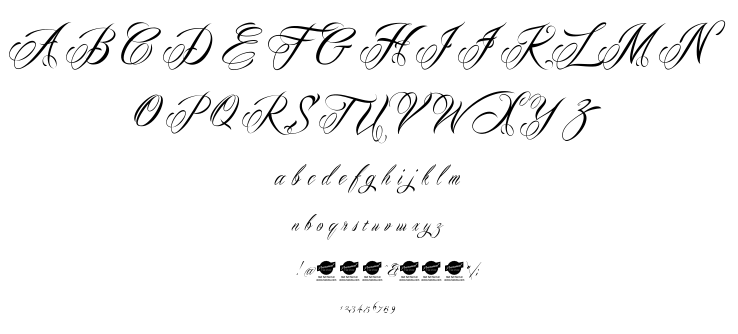 A B C D E F G H I J K L M N
O P Q R S T U V W X Y Z
a b c d e f g h i j k l m
n b o q r s t u v w x y z
! @ & " % ;
1 2 3 4 5 6 7 8 9